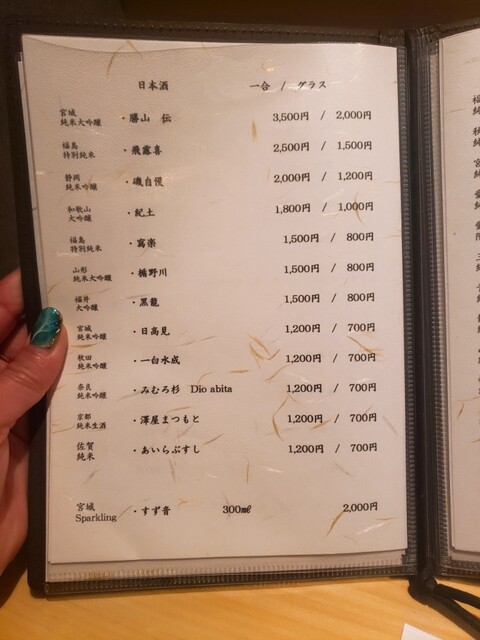 日本酒 一合 / グラス
宮城 純米大吟醸 ・勝山 伝 3,500円 / 2,000円
福島 特別純米 ・飛露喜 2,500円 / 1,500円
静岡 純米吟醸 ・磯自慢 2,000円 / 1,200円
和歌山 大吟醸 ・紀土 1,800円 / 1,000円
福島 特別純米 ・寫楽 1,500円 / 800円
山形 純米大吟醸 ・楯野川 1,500円 / 800円
福井 大吟醸 ・黒龍 1,500円 / 800円
宮城 純米吟醸 ・日高見 1,200円 / 700円
秋田 純米吟醸 ・一白水成 1,200円 / 700円
奈良 純米吟醸 ・みむろ杉 Dio abita 1,200円 / 700円
京都 純米生酒 ・澤屋まつもと 1,200円 / 700円
佐賀 純米 ・あいらぶすし 1,200円 / 700円
宮城 Sparkling ・すず音 300㎖ 2,000円